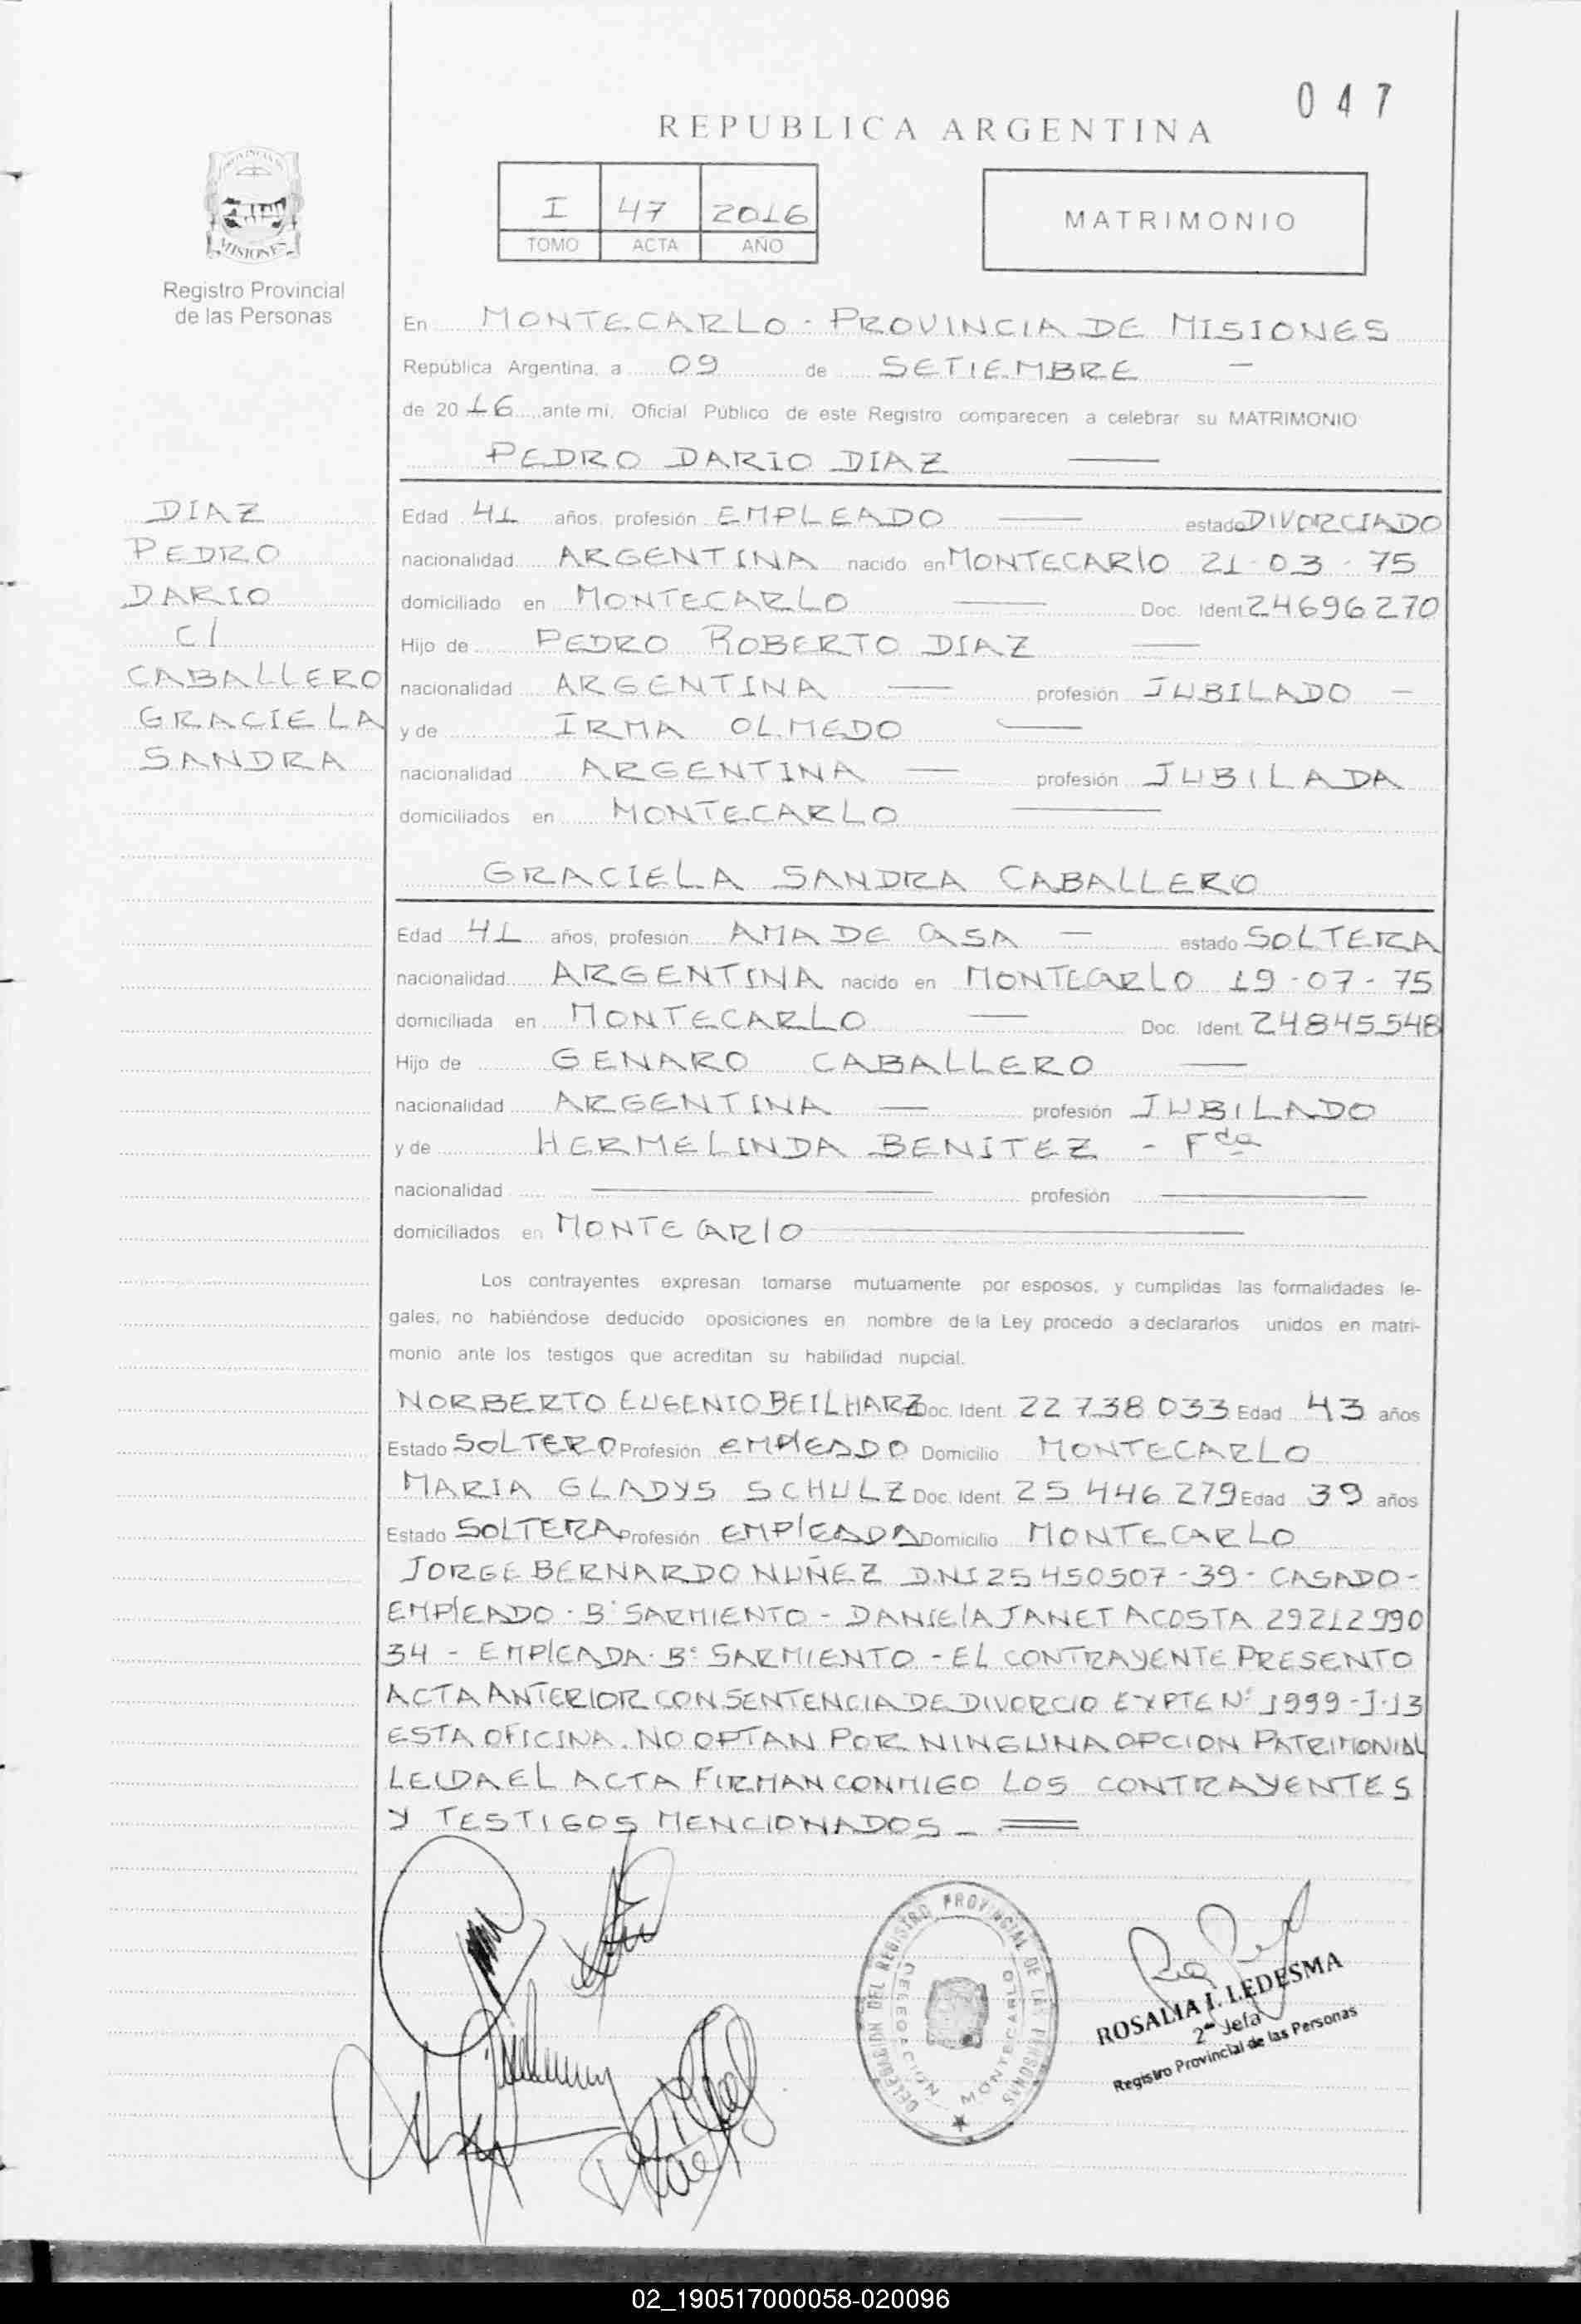 047
REPUBLICA ARGENTINA
PROVINCIA DE
MISIONES
Registro Provincial
de las Personas
I 47 2016
TOMO ACTA AÑO
MATRIMONIO
En MONTECARLO - PROVINCIA DE MISIONES
República Argentina, a 09 de SETIEMBRE —
de 2016 ante mi, Oficial Público de este Registro comparecen a celebrar su MATRIMONIO
PEDRO DARIO DIAZ —
DIAZ
PEDRO
DARIO
C/
CABALLERO
GRACIELA
SANDRA
Edad 41 años, profesión EMPLEADO — estado DIVORCIADO
nacionalidad ARGENTINA nacido en MONTECARlO 21-03-75
domiciliado en MONTECARLO — Doc. Ident 24696270
Hijo de PEDRO ROBERTO DIAZ —
nacionalidad ARGENTINA — profesión JUBILADO —
y de IRMA OLMEDO —
nacionalidad ARGENTINA — profesión JUBILADA
domiciliados en MONTECARLO —
GRACIELA SANDRA CABALLERO
Edad 41 años, profesión AMA DE CASA — estado SOLTERA
nacionalidad ARGENTINA nacido en MONTECARLO 19-07-75
domiciliada en MONTECARLO — Doc. Ident. 24845548
Hijo de GENARO CABALLERO —
nacionalidad ARGENTINA — profesión JUBILADO
y de HERMELINDA BENITEZ - Fda
nacionalidad — profesión —
domiciliados en MONTECARlO —
Los contrayentes expresan tomarse mutuamente por esposos, y cumplidas las formalidades le-
gales, no habiéndose deducido oposiciones en nombre de la Ley procedo a declararlos unidos en matri-
monio ante los testigos que acreditan su habilidad nupcial.
NORBERTO EUGENIO BEILHARZ Doc. Ident. 22 738 033 Edad 43 años
Estado SOLTERO Profesión EMPlEADO Domicilio MONTECARLO
MARIA GLADYS SCHULZ Doc. Ident. 25 446 279 Edad 39 años
Estado SOLTERA Profesión EMPlEADA Domicilio MONTECARLO
JORGE BERNARDO NUÑEZ D.N.I 25 450507 - 39 - CASADO -
EMPlEADO - B° SARMIENTO - DANIElA JANET ACOSTA 29212990
34 - EMPlEADA - B° SARMIENTO - EL CONTRAYENTE PRESENTO
ACTA ANTERIOR CON SENTENCIA DE DIVORCIO EXPTE N° 1999-J-13
ESTA OFICINA. NO OPTAN POR NINGUNA OPCION PATRIMONIAL
LEIDA EL ACTA FIRMAN CONMIGO LOS CONTRAYENTES
Y TESTIGOS MENCIONADOS _ =
DELEGACION DEL REGISTRO PROVINCIAL DE LAS PERSONAS
DELEGACION MONTECARLO
ROSALIA I. LEDESMA
2da Jefa
Registro Provincial de las Personas
02_190517000058-020096